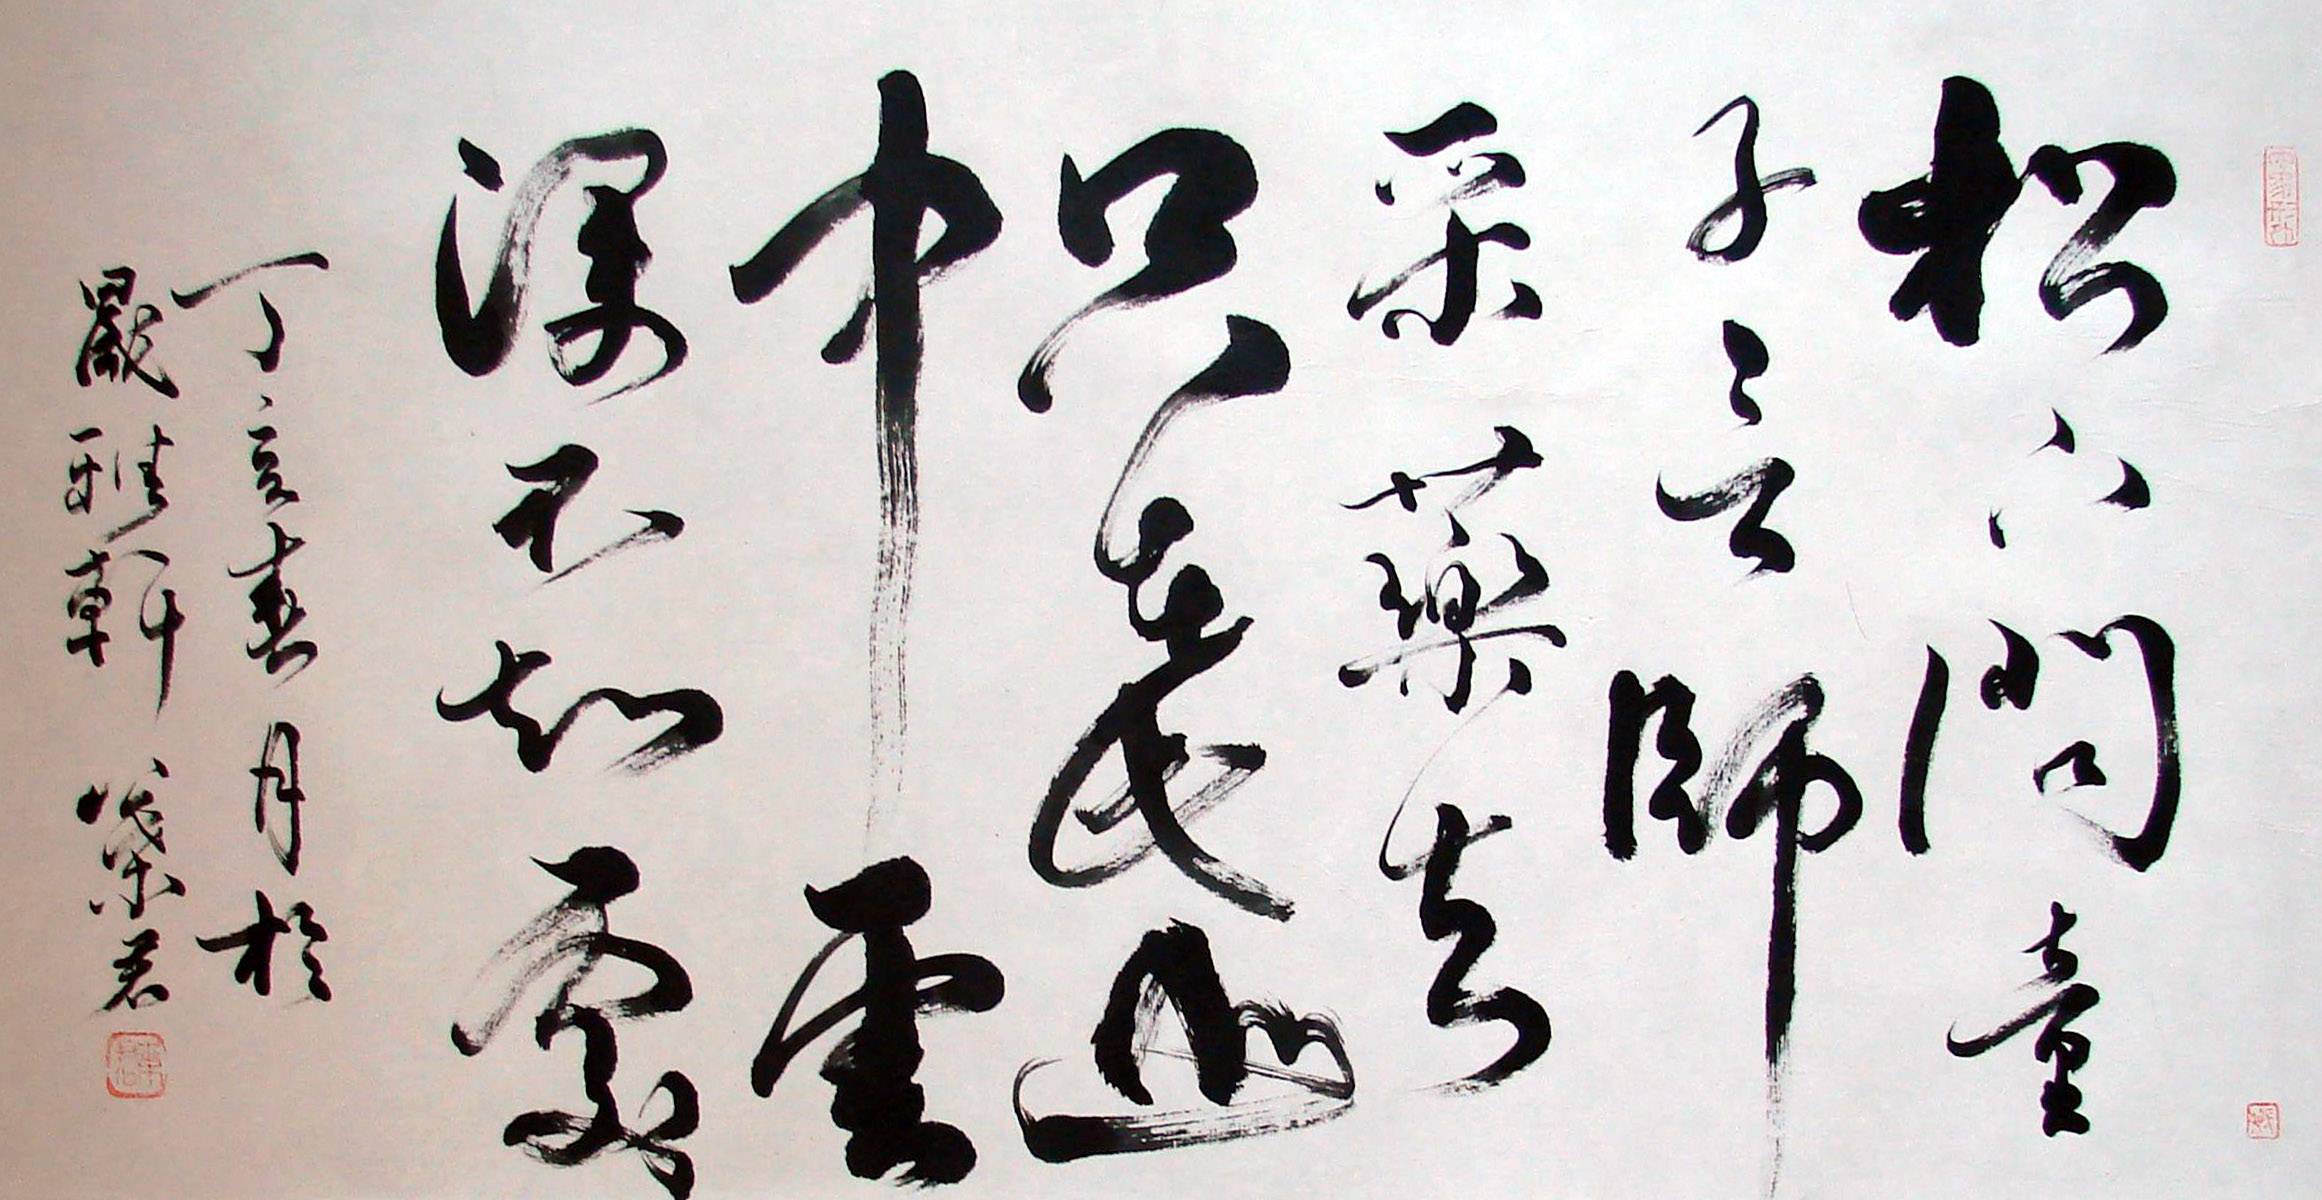 松下問童
子言師
采藥去
只在此山
中雲
深不知處
丁亥春月於
晸雅軒 業君